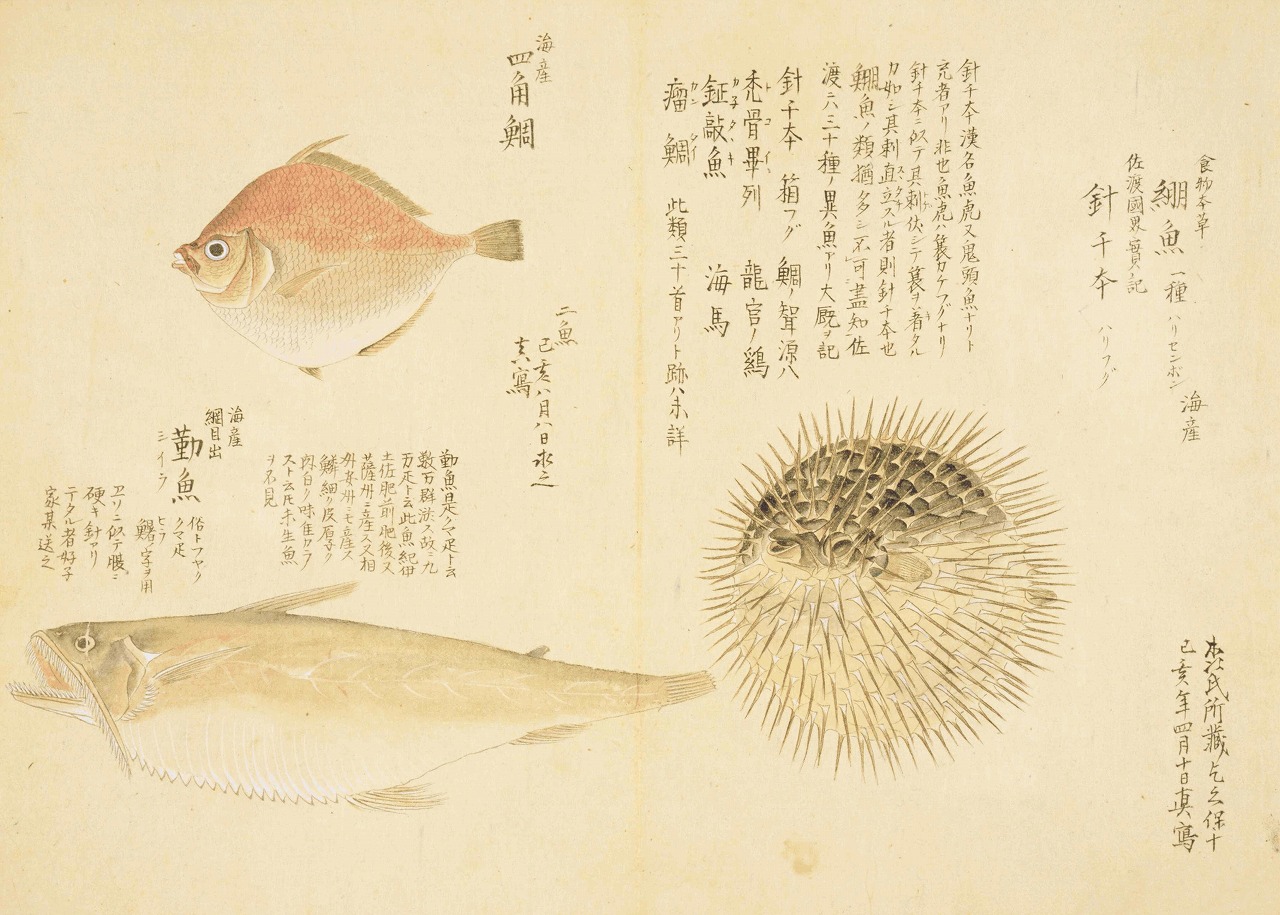 食物本草
繃魚 一種 ハリセンボン 海産
佐渡國異實記
針千本 ハリフグ
針千本漢名魚虎又鬼頭魚ナリト
充者アリ非也魚虎ハ蓑カケフグナリ
針千本ニ似テ其刺伏シテ蓑ヲ着タル
カ如シ其刺直立スル者則針千本也
繃魚ノ類猶多シ不可盡知佐
渡ニ八三十種ノ異魚アリ大厩ヲ記
針千本 箱フグ 鯛ノ聟源八
禿骨畢列 龍宮ノ鷄
鉦敲魚 海馬
瘤鯛 此類三十首アリト跡ハ未詳
本氏所藏乞之保十
己亥年四月十日真寫
海産
四角鯛
二魚
己亥八月八日求之
真寫
海産
網目出
勤魚
ミイラ
俗トフヤク
クマ疋
ヒラ
鰳字ヲ用
ヱソニ似テ腹ニ
硬キ針アリ
テクル者好子
家某送之
勤魚是クマ疋ト云
数百群游ス故ニ九
万疋ト云此魚紀伊
土佐肥前肥後又
薩州ニ産ス又相
州房州ニモ産ス
鱗細ク皮厚ク
肉白ク味佳カラ
スト云圧未生魚
ヲ不見